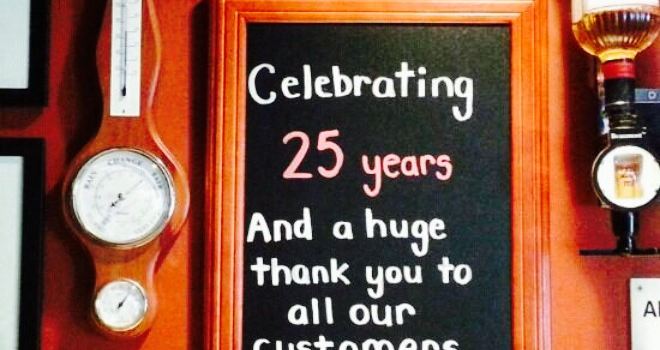 Celebrating
25 years
And a huge
thank you to
all our
customers
RAIN CHANGE FAIR
Beaumont